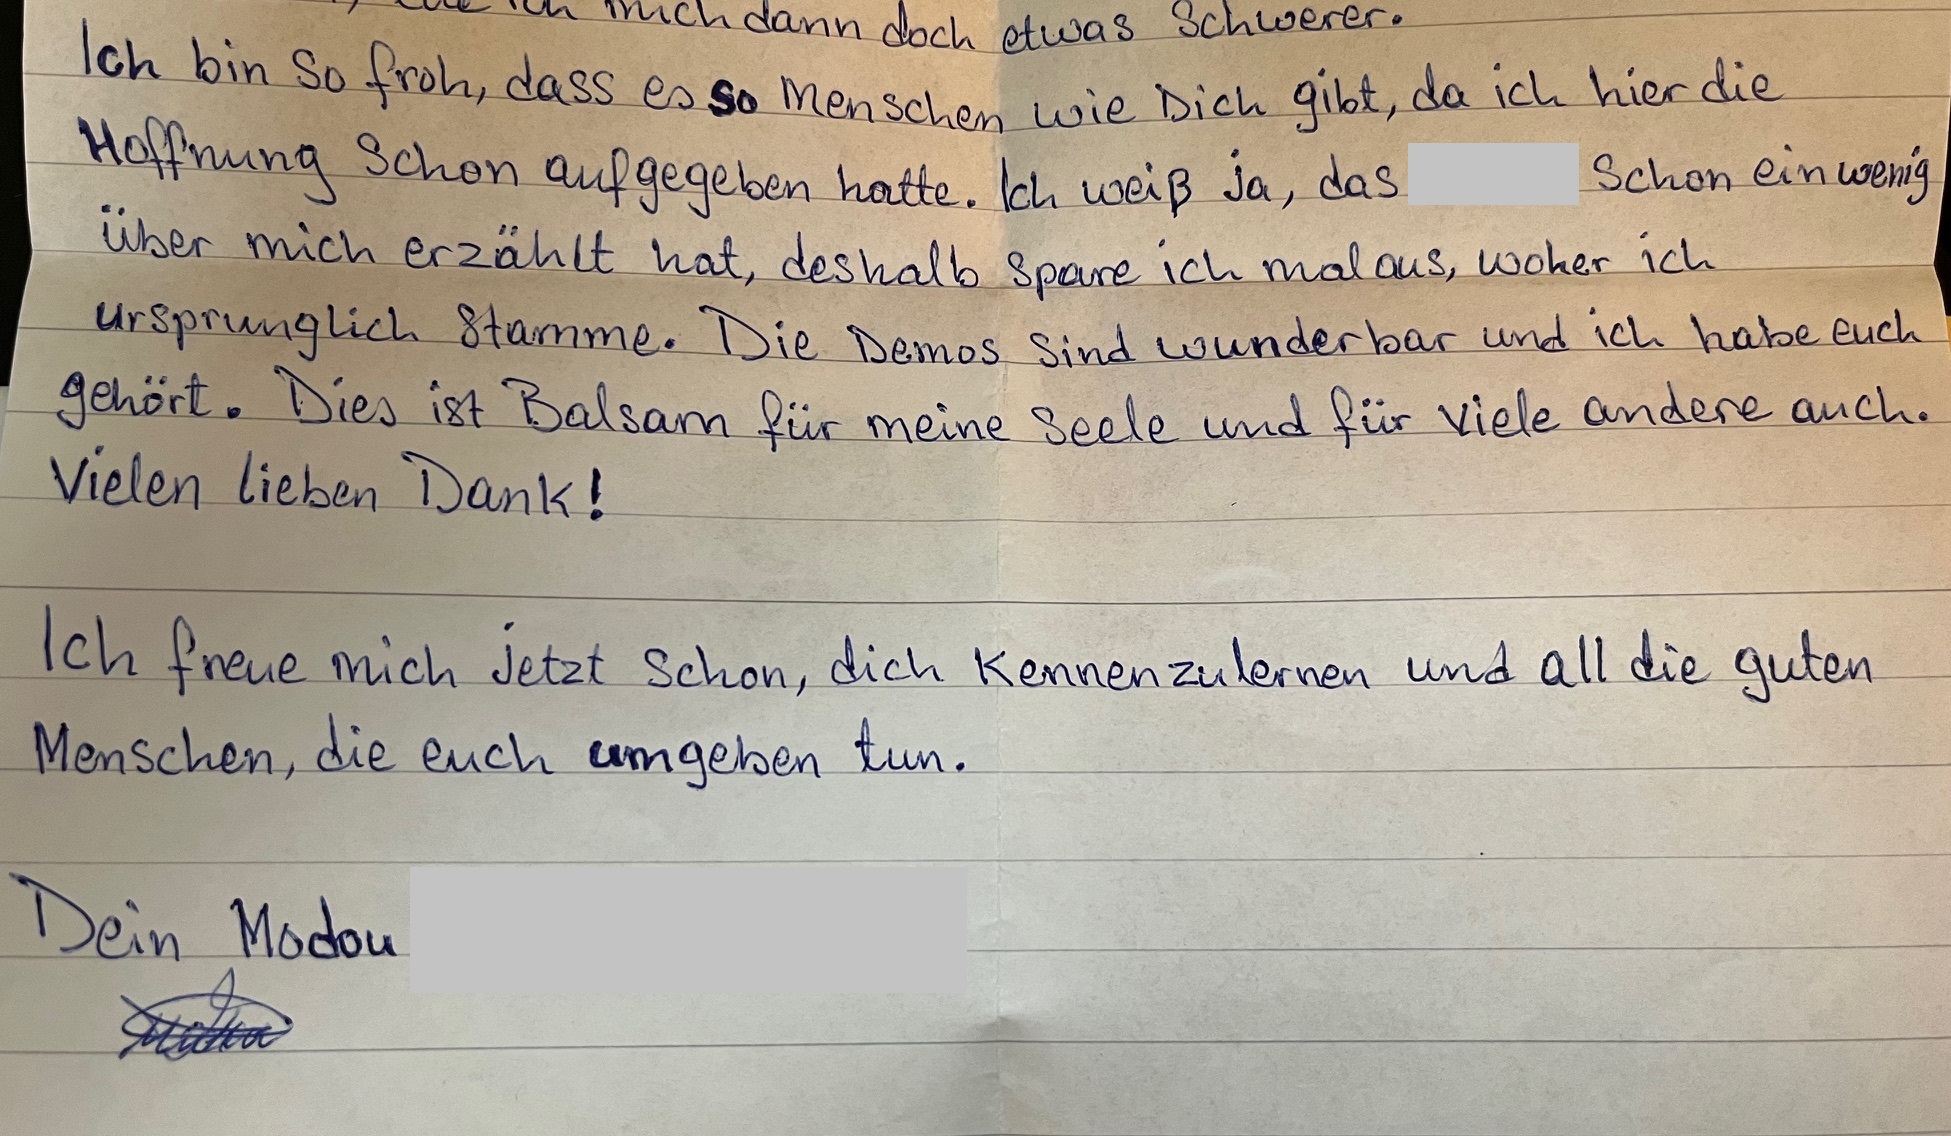 ich mich dann doch etwas Schwerer.
Ich bin so froh, dass es so Menschen wie Dich gibt, da ich hier die
Hoffnung Schon aufgegeben hatte. Ich weiß ja, das Schon ein wenig
über mich erzählt hat, deshalb spare ich mal aus, woher ich
ursprunglich Stamme. Die Demos Sind wunderbar und ich habe euch
gehört. Dies ist Balsam für meine Seele und für viele andere auch.
Vielen lieben Dank!
Ich freue mich jetzt Schon, dich Kennenzulernen und all die guten
Menschen, die euch umgeben tun.
Dein Modou